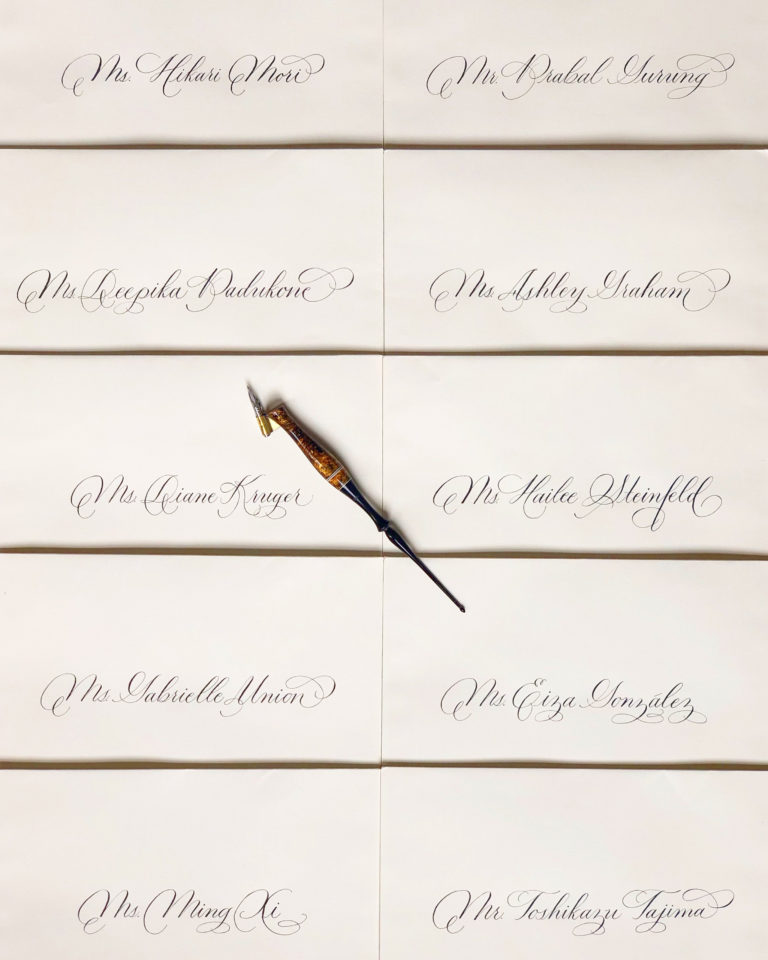 Ms. Hikari Mori
Mr. Prabal Gurung
Ms. Deepika Padukone
Ms. Ashley Graham
Ms. Diane Kruger
Ms. Hailee Steinfeld
Ms. Gabrielle Union
Ms. Eiza González
Ms. Ming Xi
Mr. Toshikazu Tajima